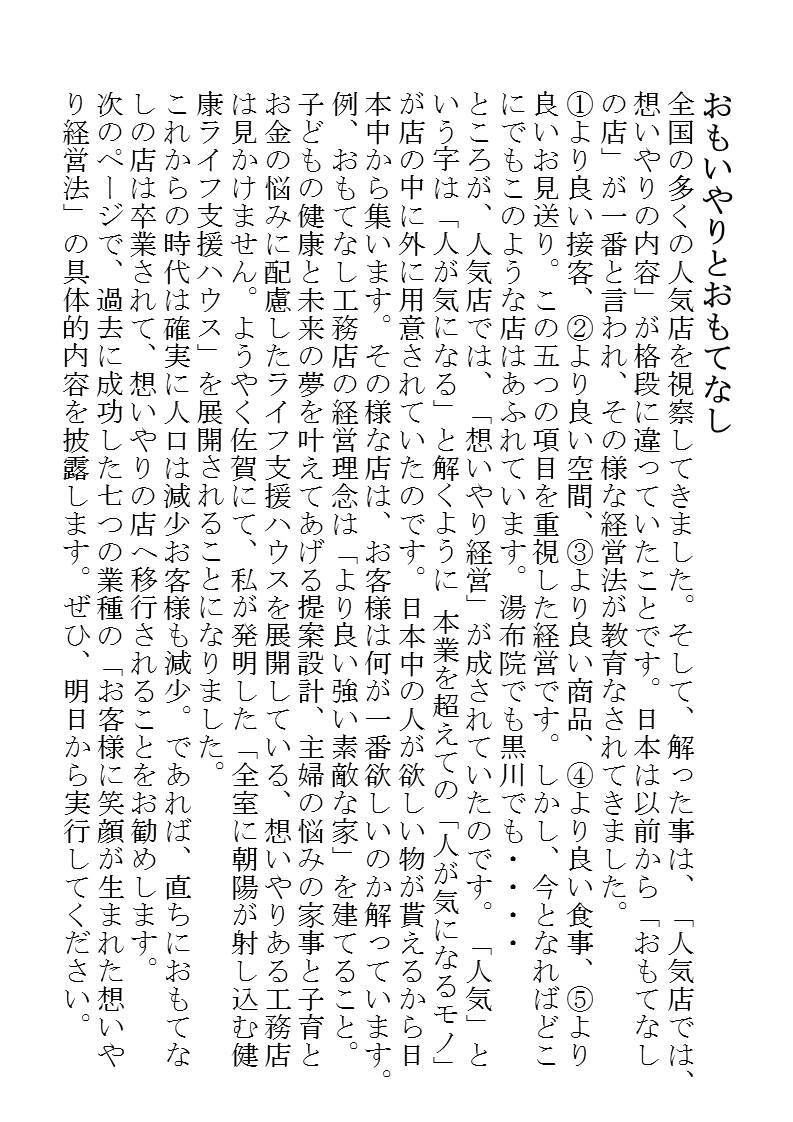 おもいやりとおもてなし
全国の多くの人気店を視察してきました。そして、解った事は、「人気店では、
想いやりの内容」が格段に違っていたことです。日本は以前から「おもてなし
の店」が一番と言われ、その様な経営法が教育なされてきました。
①より良い接客、②より良い空間、③より良い商品、④より良い食事、⑤より
良いお見送り。この五つの項目を重視した経営です。しかし、今となればどこ
にでもこのような店はあふれています。湯布院でも黒川でも・・・・
ところが、人気店では、「想いやり経営」が成されていたのです。「人気」と
いう字は「人が気になる」と解くように 本業を超えての「人が気になるモノ」
が店の中に外に用意されていたのです。日本中の人が欲しい物が貰えるから日
本中から集います。その様な店は、お客様は何が一番欲しいのか解っています。
例、おもてなし工務店の経営理念は「より良い強い素敵な家」を建てること。
子どもの健康と未来の夢を叶えてあげる提案設計、主婦の悩みの家事と子育と
お金の悩みに配慮したライフ支援ハウスを展開している、想いやりある工務店
は見かけません。ようやく佐賀にて、私が発明した「全室に朝陽が射し込む健
康ライフ支援ハウス」を展開されることになりました。
これからの時代は確実に人口は減少お客様も減少。であれば、直ちにおもてな
しの店は卒業されて、想いやりの店へ移行されることをお勧めします。
次のページで、過去に成功した七つの業種の「お客様に笑顔が生まれた想いや
り経営法」の具体的内容を披露します。ぜひ、明日から実行してください。